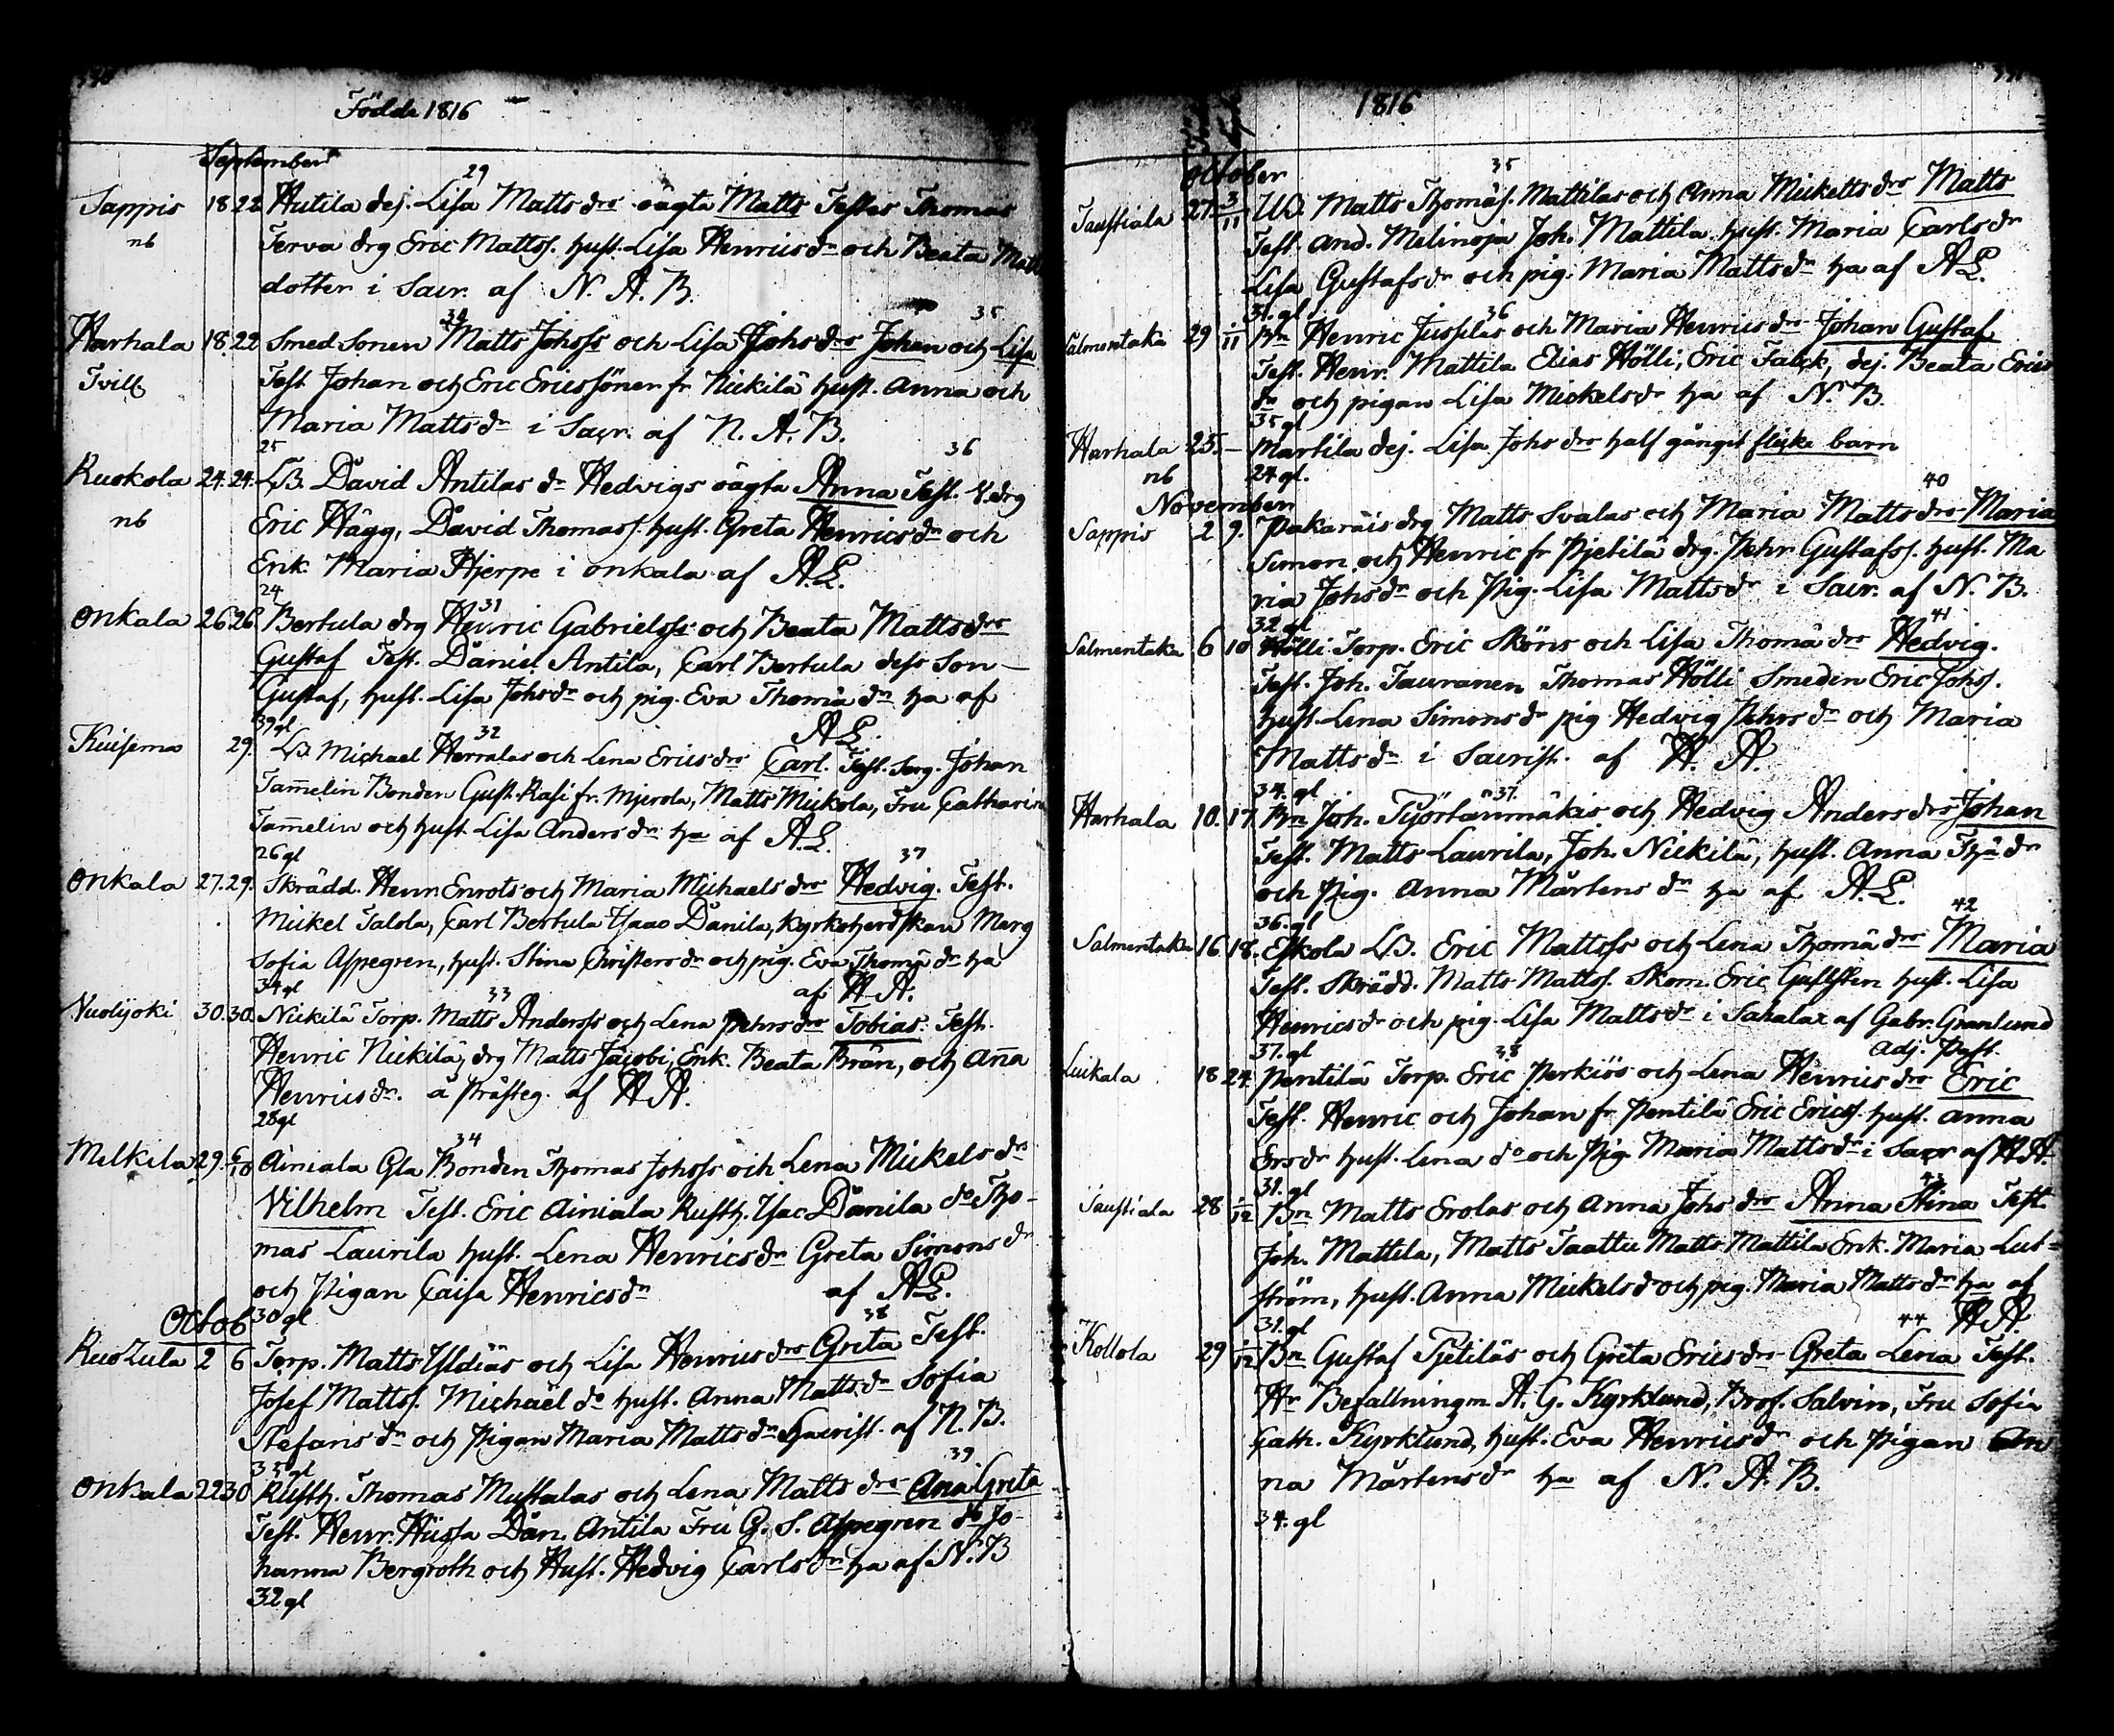 Födde 1816
September
29
Sappis 18 22 Hutila dej. Lisa Matts drs oägta Matts Testes Thomas
nb Terva drg Eric Mattss. hust. Lisa Henricsdr och Beata Matts
dotter i Sacr. af N. A. B.
34 35
Harhala 18. 22 Smed Sonen Matts Johss och Lisa Johs drs Johan och Lisa
Tvill Test Johan och Eric Ericssöner fr Nickilä hust. Anna och
Maria Matts dr i Sacr. af N. A. B.
25 36
Ruokola 24. 24. LB. David Antilas dr Hedvigs oägta Anna Test. drg
nb Eric Hägg, David Thomass. hust. Greta Henrics dr och
Enk. Maria Hjerpe i Onkala af A. L.
24
31
Onkala 26 26. Bertula drg Henric Gabrielss och Beata Matts drs
Gustaf Test. Daniel Antila, Carl Bertula dess Son
Gustaf, hust. Lisa Johs dr och pig. Eva Thomä dr ha af
39 gl A L.
32
Kuisema 29. LB Michael Herralas och Lena Erics drs Carl. Test. Serg. Johan
Tam̄elin Bonden Gust. Rasi fr. Mierola, Matts Mickola, Fru Catharina
Tam̄elin och hust. Lisa Anders dr ha af A. L.
26 gl 37
Onkala 27. 29. Skrädd. Henr. Enrots och Maria Michaels drs Hedvig. Test.
Mickel Talola, Carl Bertula Isaac Danila, Kyrkoherdskan Marg
Sofia Aspegren, hust. Stina Christers dr och pig. Eva Thomä dr ha
34 gl af A. A.
33
Vuolijoki 30. 30. Nickilä Torp. Matts Anderss och Lena Pehrs drs Tobias. Test.
Henric Nickilä, drg Matts Jacobi, Enk. Beata Brän, och An̄a
Henrics dr. å Prästeg. af A A.
28 gl
34
Melkila 29. 6/10 Ainiala Gla Bonden Thomas Johss och Lena Mickels dr
Vilhelm Test. Eric Ainiala Rusth. Isac Danila do Tho-
mas Laurila hust. Lena Henrics dr Greta Simons dr
och Pigan Caisa Henrics dr af A L.
Octob 30 gl 38
2 6 Torp. Matts Ylidiäs och Lisa Henrics drs Greta Test.
Josef Mattss. Michaël do hust. Anna Matts dr Sofia
Stefans dr och Pigan Maria Matts dr Sacrist. af N. B.
35 gl 39
Onkala 22 30 Rusth. Thomas Mustalas och Lena Matts drs Ana Greta
Test. Henr. Hüssa Dan. Antila Fru G. S. Aspegren do Jo-
hanna Bergroth och Hust. Hedvig Carls dr ha af N. B
32 gl
1816
October
35
Taustiala 27. 3/11 LB. Matts Thomäs. Mattilas och Anna Mickels drs Matts
Test. And. Melinoja Joh. Mattila hust. Maria Carls dr
Lisa Gustafs dr och pig. Maria Matts dr ha af A L.
31. gl 36
Salmentaka 29 1/11 Bn Henric Jussilas och Maria Henrics drs Johan Gustaf
Test. Henr. Mattila Elias Hölli, Eric Falck, dej. Beata Erics
dr och pigan Lisa Mickels dr ha af N. B.
35 gl
Harhala 25. — Martila dej. Lisa Johs drs half gånget flicke barn
nb 24 gl.
November
40
Sappis 2 9. Pakaräis drg Matts Svalas och Maria Matts drs Maria
Simon och Henric fr Pjetilä drg. Pehr Gustafss. hust. Ma
ria Johs dr och Pig. Lisa Matts dr i Sacr. af N. B.
32 gl 41
Salmentaka 6 10 Hölli Torp. Eric Sköns och Lisa Thomä drs Hedvig.
Test. Joh. Tauranen Thomas Hölli Smeden Eric Johss.
hust. Lena Simons dr pig Hedvig Pehrs dr och Maria
Matts dr i Sacrist. af A. A.
34. gl 37.
Harhala 10. 17. Bn Joh. Työrtänmäkis och Hedvig Anders drs Johan
Test. Matts Laurila, Joh. Nickilä, hust. Anna Thä dr
och Pig. Anna Mårtens dr ha af A. L.
36. gl 42
Salmentaka 16 18. Eskola LB. Eric Mattss och Lena Thomä drs Maria
Test. Skrädd. Matts Mattss. Skom. Eric hust. Lisa
Henrics dr och pig. Lisa Matts dr i Sahalax af Gabr. Granlund
37. gl Adj. Past.
38
Luikala 18 24. Pentilä Torp. Eric Perkiös och Lena Henrics drs Eric
Test. Henric och Johan fr Pentilä Eric Ericss. hust. Anna
Ers dr hust. Lena do och Pig. Maria Matts dr i Sacr af A A.
31. gl 43
Taustiala 28 1/12 Bn Matts Erolas och Anna Johs drs Anna Stina Test.
Joh. Mattila, Matts Taattu Matts Mattila Enk. Maria Lut-
ström, hust. Anna Mickels dr och pig. Maria Matts dr ha af
31. gl A A.
44
Kollola 29 1/12 Bn Gustaf Pjetiläs och Greta Erics drs Greta Lena Test.
Hr Befallningm A. G. Kyrklund, Brof. Salvin, Fru Sofia
Cath. Kyrklund, hust. Eva Henrics dr och Pigan An
na Mårtens dr ha af N. A. B.
34. gl